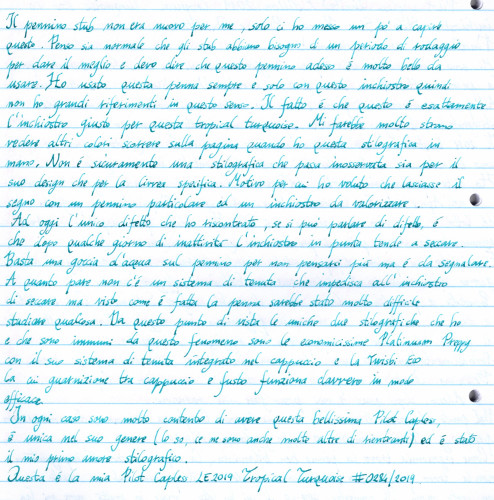 Il pennino stub non era nuovo per me, solo ci ho messo un po' a capire
questo. Penso sia normale che gli stub abbiano bisogno di un periodo di rodaggio
per dare il meglio e devo dire che questo pennino adesso è molto bello da
usare. Ho usato questa penna sempre e solo con questo inchiostro quindi
non ho grandi riferimenti in questo senso. Il fatto è che questo è esattamente
l'inchiostro giusto per questa tropical turquoise. Mi farebbe molto strano
vedere altri colori scorrere sulla pagina quando ho questa stilografica in
mano. Non è sicuramente una stilografica che passa inosservata sia per il
suo design che per la livrea specifica. Motivo per cui ho voluto che lasciasse il
segno con un pennino particolare ed un inchiostro da valorizzare.
Ad oggi l'unico difetto che ho riscontrato, se si può parlare di difetto, è
che dopo qualche giorno di inattività l'inchiostro in punta tende a seccare.
Basta una goccia d'acqua sul pennino per non pensarci più ma è da segnalare.
A quanto pare non c'è un sistema di tenuta che impedisca all'inchiostro
di seccare ma visto come è fatta la penna sarebbe stato molto difficile
studiare qualcosa. Da questo punto di vista le uniche due stilografiche che ho
e che sono immuni da questo fenomeno sono le economicissime Platinum Preppy
con il suo sistema di tenuta integrato nel cappuccio e la Twisbi Eco
la cui guarnizione tra cappuccio e fusto funziona davvero in modo
efficace.
In ogni caso sono molto contento di avere questa bellissima Pilot Capless,
è unica nel suo genere (lo so, ce ne sono anche molto altre di rientranti) ed è stato
il mio primo amore stilografico.
Questa è la mia Pilot Capless LE2019 Tropical Turquoise #0284/2019.